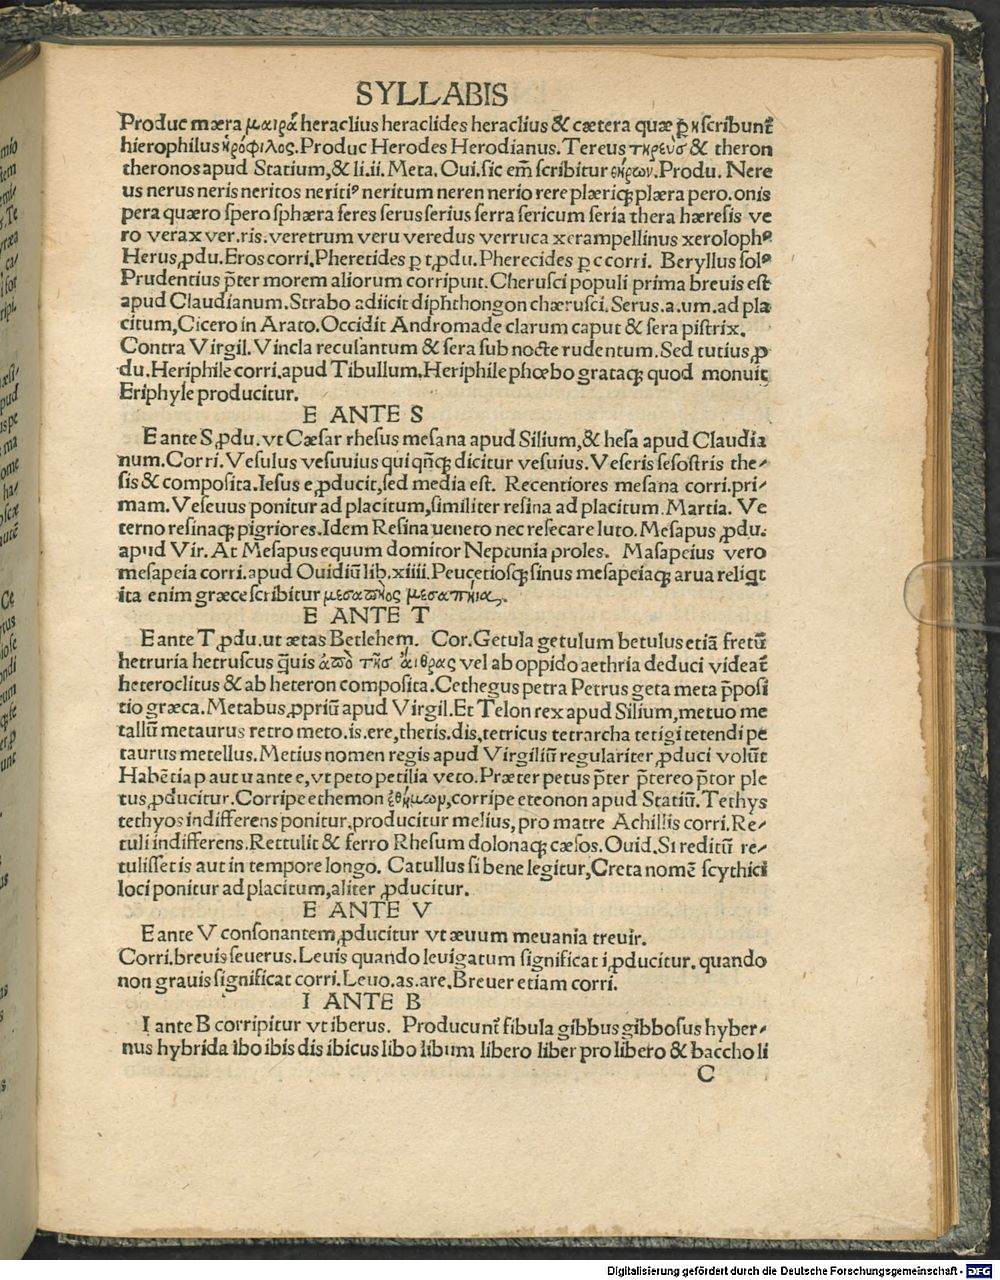 SYLLABIS
Produc mæra μαιρά heraclius heraclides heraclius & cætera quæ ꝑ η scribunt᷑
hierophilus ἱερόφιλος. Produc Herodes Herodianus. Tereus τηρεὺσ & theron
theronos apud Statium, & li. ii. Meta. Oui. sic em̃ scribitur θήρων. Produ. Nere
us nerus neris neritos neritiꝰ neritum neren nerio rere plæriqꝫ plæra pero. onis
pera quæro spero sphæra seres serus serius serra sericum seria thera hæresis ve
ro verax ver. ris. veretrum veru veredus verruca xerampellinus xerolophꝰ
Herus, ꝓdu. Eros corri. Pheretides ꝑ t, ꝓdu. Pherecides ꝑ c corri. Beryllus solꝰ
Prudentius p̃ter morem aliorum corripuit. Cherusci populi prima breuis est
apud Claudianum. Strabo adiicit diphthongon chærusci. Serus. a. um. ad pla
citum, Cicero in Arato. Occidit Andromade clarum caput & sera pistrix.
Contra Virgil. Vincla recusantum & sera sub nocte rudentum. Sed tutius, ꝓ
du. Heriphile corri. apud Tibullum. Heriphile phœbo grataqꝫ quod monuit
Eriphyle producitur.
E ANTE S
E ante S, ꝓdu. vt Cæsar rhesus mesana apud Silium, & hesa apud Claudia
num. Corri. Vesulus vesuuius qui qñqꝫ dicitur vesuius. Veseris sesostris the-
sis & composita. Iesus e, ꝓducit, sed media est. Recentiores mesana corri. pri-
mam. Veseuus ponitur ad placitum, similiter resina ad placitum. Martia. Ve
terno resinaqꝫ pigriores. Idem Resina ueneto nec resecare luto. Mesapus ꝓdu.
apud Vir. At Mesapus equum domitor Neptunia proles. Masapeius vero
mesapeia corri. apud Ouidiũ lib. xiiii. Peucetiosqꝫ sinus mesapeiaqꝫ arua reliqt
ita enim græce scribitur
E ANTE T
E ante T, ꝓdu. ut ætas Betlehem. Cor. Getula getulum betulus etiã fretũ
hetruria hetruscus q̃uis ἀπὸ τῆσ ἀιθρας vel ab oppido aethria deduci videat᷑
heteroclitus & ab heteron composita. Cethegus petra Petrus geta meta p̃posi
tio græca. Metabus, ꝓpriũ apud Virgil. Et Telon rex apud Silium, metuo me
tallũ metaurus retro meto. is. ere, thetis. dis, tetricus tetrarcha tetigi tetendi pe
taurus metellus. Metius nomen regis apud Virgiliũ regulariter, ꝓduci volũt
Habẽtia p aut u ante e, vt peto petilia veto. Præter petus p̃ter p̃tereo p̃tor ple
tus, ꝓducitur. Corripe ethemon ἐθήμων, corripe eteonon apud Statiũ. Tethys
tethyos indifferens ponitur, producitur melius, pro matre Achillis corri. Re-
tuli indifferens. Rettulit & ferro Rhesum dolonaqꝫ cæsos. Ouid. Si reditũ re-
tulisset is aut in tempore longo. Catullus si bene legitur, Creta nomẽ scythici
loci ponitur ad placitum, aliter ꝓducitur.
E ANTE V
E ante V consonantem, ꝓducitur vt æuum meuania treuir.
Corri. breuis seuerus. Leuis quando leuigatum significat i, ꝓducitur. quando
non grauis significat corri. Leuo. as. are. Breuer etiam corri.
I ANTE B
I ante B corripitur vt iberus. Producunt᷑ fibula gibbus gibbosus hyber-
nus hybrida ibo ibis dis ibicus libo libum libero liber pro libero & baccho li
C
Digitalisierung gefördert durch die Deutsche Forschungsgemeinschaft - DFG